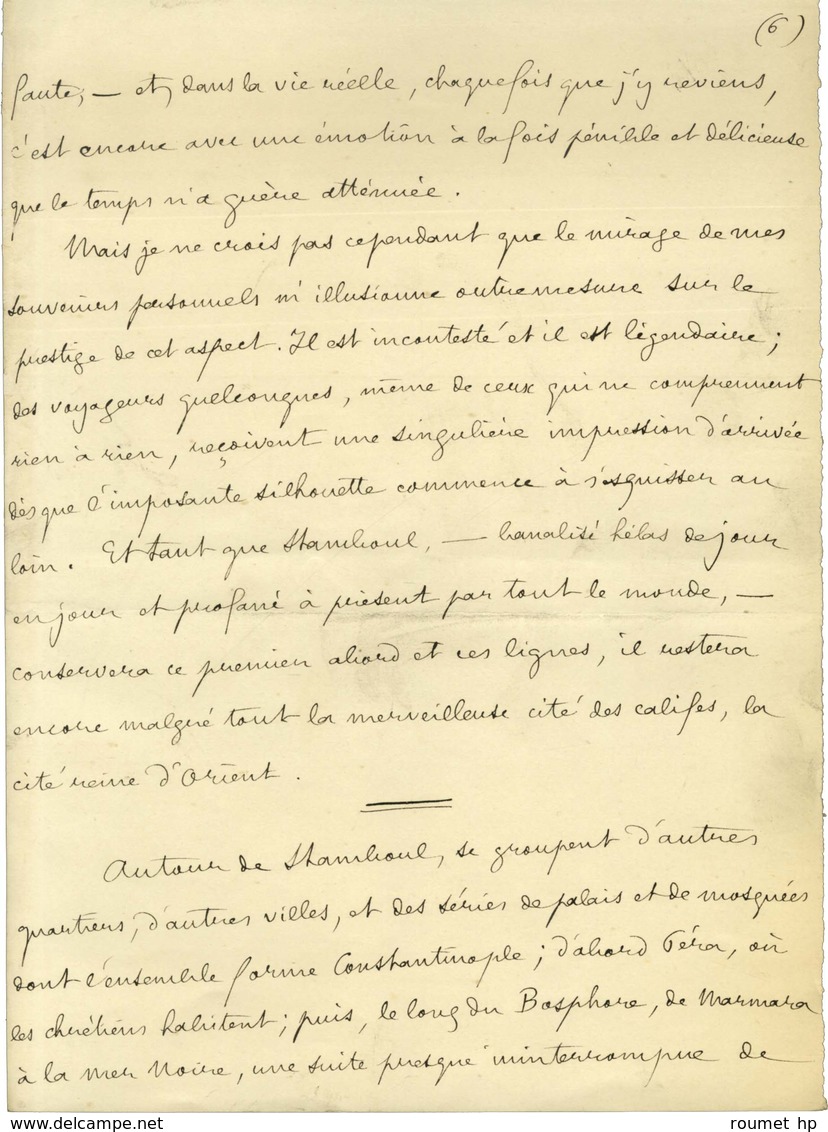 (6)
faute; — et, dans la vie réelle, chaque fois que j'y reviens,
c'est encore avec une émotion à la fois pénible et délicieuse
que le temps n'a guère atténuée.
Mais je ne crois pas cependant que le mirage de mes
souvenirs personnels m'illusionne outre mesure sur le
prestige de cet aspect. Il est incontesté et il est légendaire;
des voyageurs quelconques, même de ceux qui ne comprennent
rien à rien, reçoivent une singulière impression d'arrivée
dès que l'imposante silhouette commence à s'esquisser au
loin. Et tant que Stamboul, — banalisé hélas de jour
en jour et profané à présent par tout le monde, —
conservera ce premier abord et ces lignes, il restera
encore malgré tout la merveilleuse cité des califes, la
cité reine d'Orient.
Autour de Stamboul, se groupent d'autres
quartiers, d'autres villes, et des séries de palais et de mosquées
dont l'ensemble forme Constantinople; d'abord Péra, où
les chrétiens habitent; puis, le long du Bosphore, de Marmara
à la mer Noire, une suite presque ininterrompue de
roumet hp